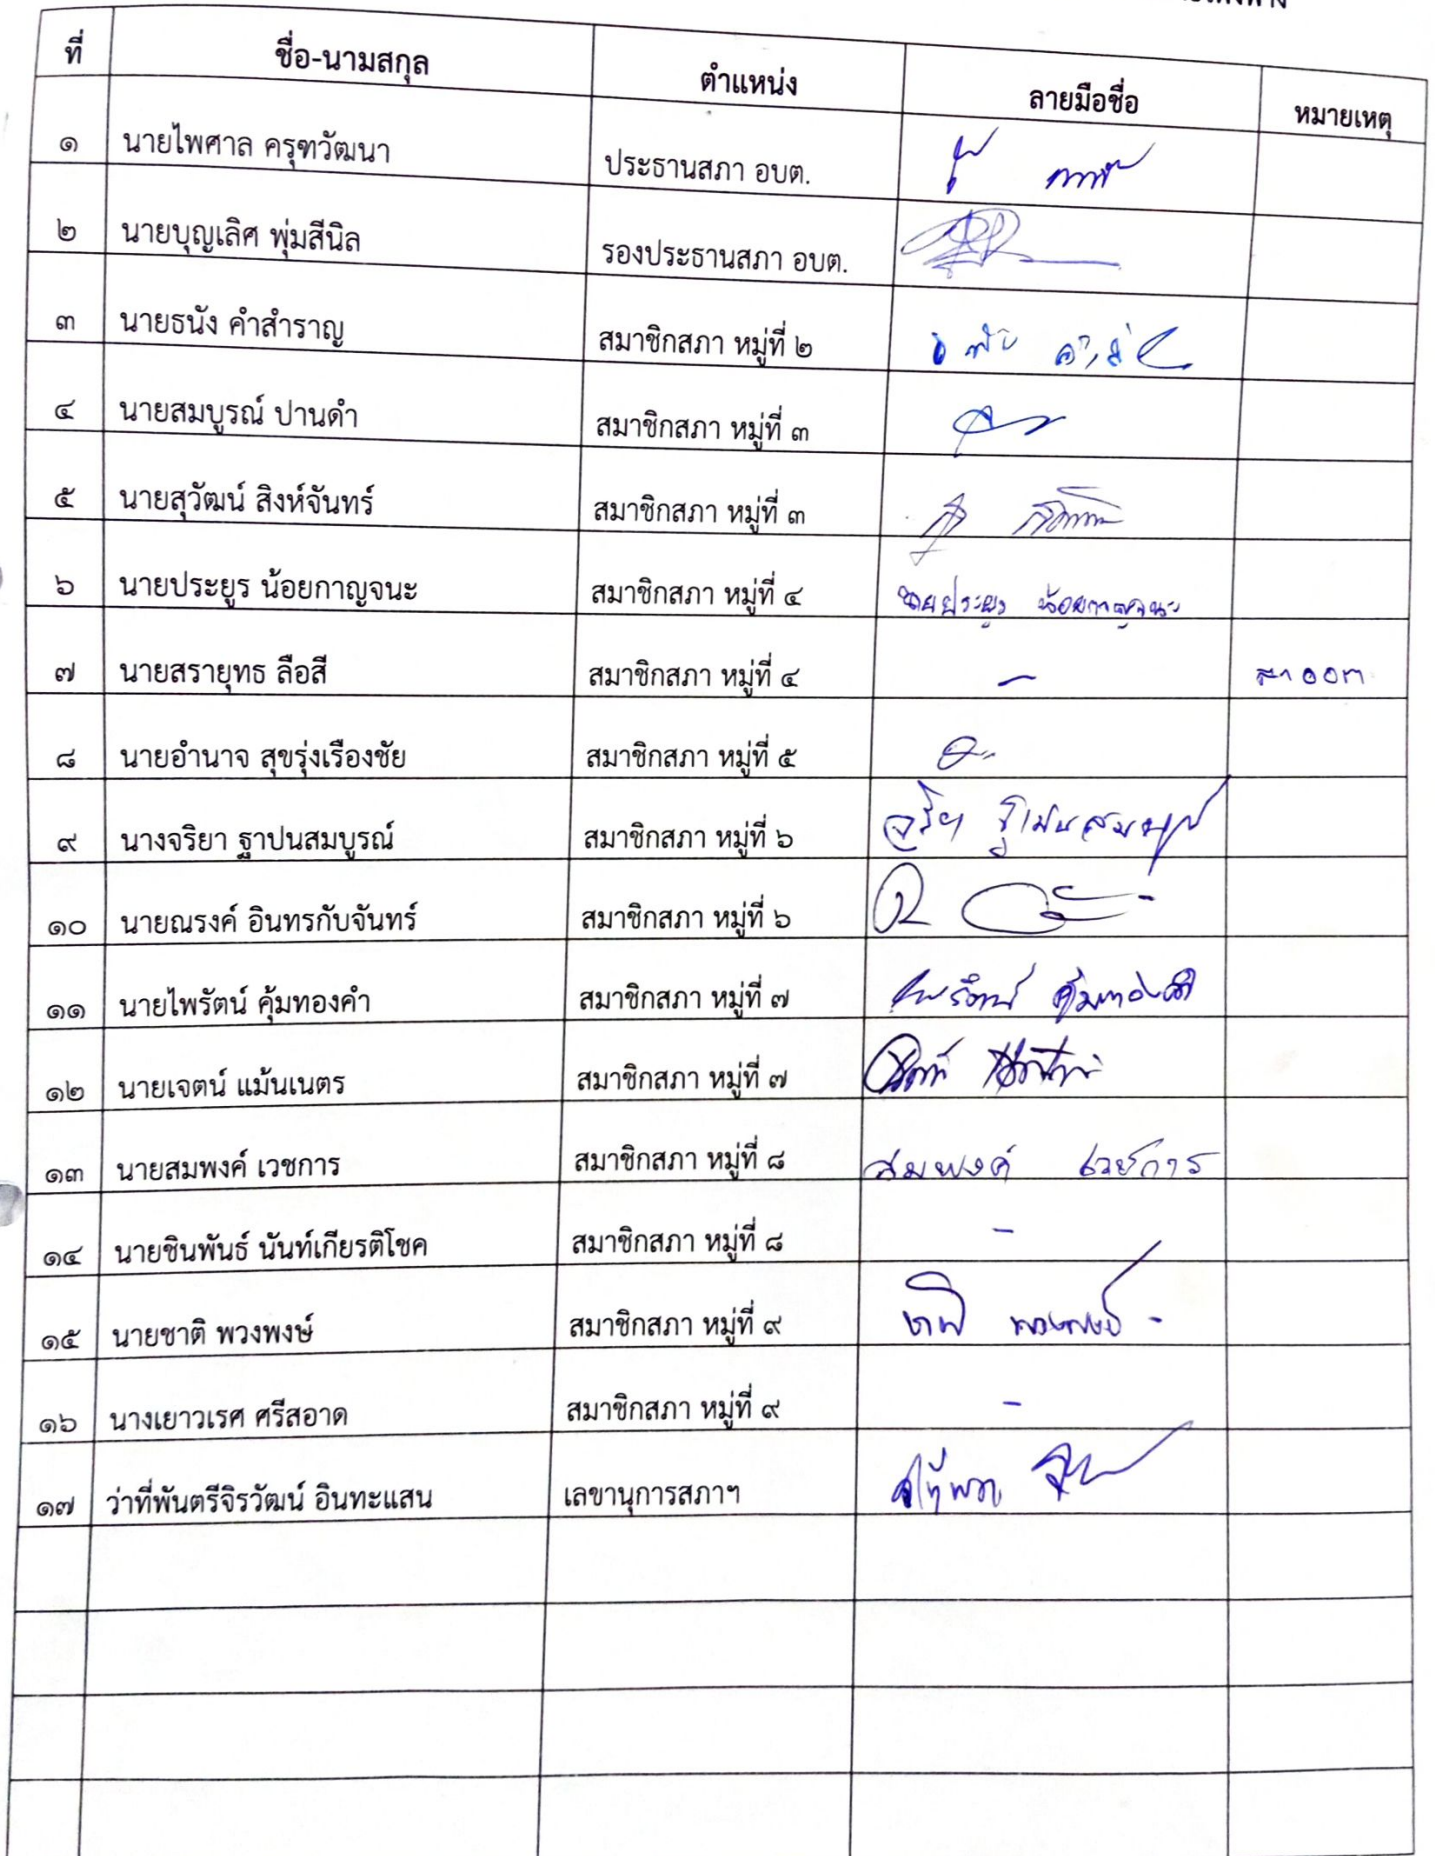 ที่ ชื่อ-นามสกุล ตำแหน่ง ลายมือชื่อ หมายเหตุ
๑ นายไพศาล ครุฑวัฒนา ประธานสภา อบต.
๒ นายบุญเลิศ พุ่มสีนิล รองประธานสภา อบต.
๓ นายธนัง คำสำราญ สมาชิกสภา หมู่ที่ ๒
๔ นายสมบูรณ์ ปานดำ สมาชิกสภา หมู่ที่ ๓
๕ นายสุวัฒน์ สิงห์จันทร์ สมาชิกสภา หมู่ที่ ๓
๖ นายประยูร น้อยกาญจนะ สมาชิกสภา หมู่ที่ ๔ นายประยูร น้อยกาญจนะ
๗ นายสรายุทธ ลือสี สมาชิกสภา หมู่ที่ ๔ - ลาออก
๘ นายอำนาจ สุขรุ่งเรืองชัย สมาชิกสภา หมู่ที่ ๕
๙ นางจริยา ฐาปนสมบูรณ์ สมาชิกสภา หมู่ที่ ๖ จริยา ฐาปนสมบูรณ์
๑๐ นายณรงค์ อินทรกับจันทร์ สมาชิกสภา หมู่ที่ ๖
๑๑ นายไพรัตน์ คุ้มทองคำ สมาชิกสภา หมู่ที่ ๗ ไพรัตน์ คุ้มทองคำ
๑๒ นายเจตน์ แม้นเนตร สมาชิกสภา หมู่ที่ ๗
๑๓ นายสมพงค์ เวชการ สมาชิกสภา หมู่ที่ ๘ สมพงค์ เวชการ
๑๔ นายชินพันธ์ นันท์เกียรติโชค สมาชิกสภา หมู่ที่ ๘ -
๑๕ นายชาติ พวงพงษ์ สมาชิกสภา หมู่ที่ ๙ ชาติ พวงพงษ์
๑๖ นางเยาวเรศ ศรีสอาด สมาชิกสภา หมู่ที่ ๙ -
๑๗ ว่าที่พันตรีจิรวัฒน์ อินทะแสน เลขานุการสภาฯ